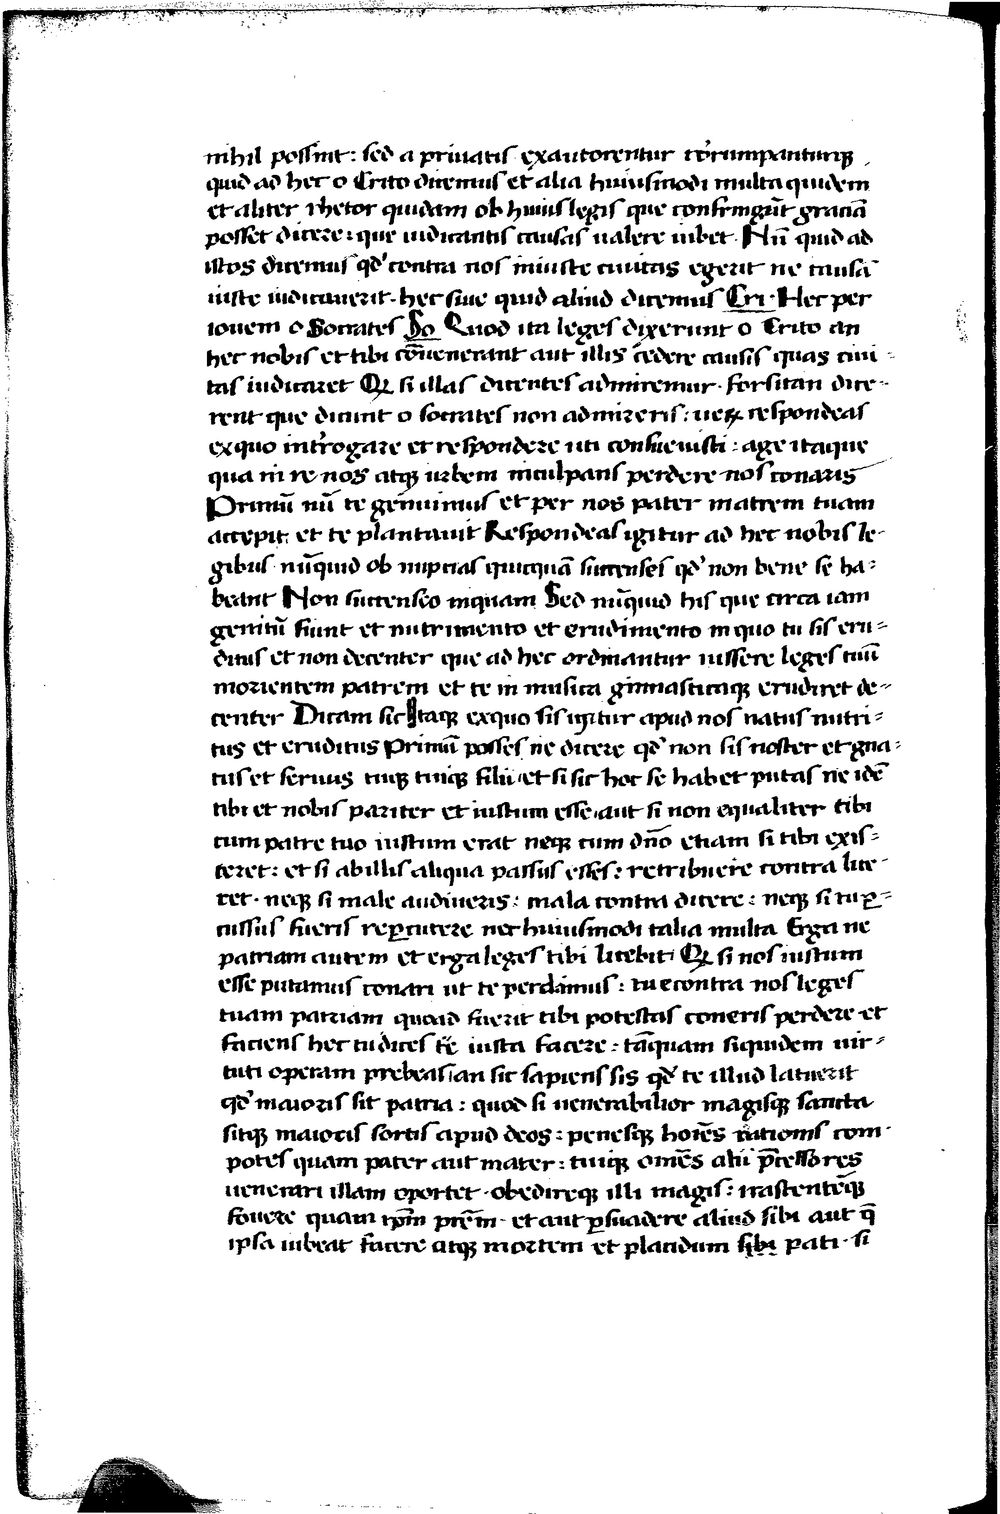 nihil possint: sed a priuatis exautorentur cõrumpanturqꝫ
quid ad hec o Crito dicemus et alia huiusmodi multa quidem
et aliter rhetor quidam ob huius legis que confringũt graciã
posset dicere: que iudicantis causas ualere iubet. Nũ quid ad
istos dicemus qd' contra nos iniuste ciuitas egerit ne causã
iuste iudicauerit. hec siue quid aliud dicemus Cri. Hec per
iouem o Socrates So Quod ita leges dixerunt o Crito an
hec nobis et tibi cõuenerant aut illis cedere causis quas ciui=
tas iudicaret Qꝫ si illas dicentes admiremur. forsitan dice=
rent que dicunt o socrates non admireris: ueꝝ respondeas
exquo int'rogare et respondere uti consueuisti: age itaque
qua in re nos atqꝫ urbem inculpans perdere nos conaris
Primũ nũ te genuimus et per nos pater matrem tuam
accepit et te plantauit Respondeas igitur ad hec nobis le-
gibus nũquid ob nupcias quicquã succenses qd' non bene se ha=
beant Non succenseo inquam Sed nũquid his que circa iam
genitũ fiunt et nutrimento et erudimento in quo tu sis eru=
ditus et non decenter que ad hec ordinantur iussere leges tuũ
morientem patrem et te in musica ginnasticaqꝫ erudiret de=
center Dicam sic Itaqꝫ exquo sis igitur apud nos natus nutri=
tus et eruditus Primũ posses ne dicere qd' non sis noster et gna=
tus et seruus tuiqꝫ tuiqꝫ filii et si sic hoc se habet putas ne idẽ
tibi et nobis pariter et iustum esse aut si non equaliter tibi
cum patre tuo iustum erat neqꝫ cum dño etiam si tibi exis=
teret: et si abillis aliqua passus esses: retribuere contra lice-
ret. neqꝫ si male audiueris: mala contra dicere: neqꝫ si tu ꝑ=
cussus fueris reꝑcutere nec huiusmodi talia multa Erga ne
patriam autem et erga leges tibi licebit Qꝫ si nos iustum
esse putamus conari ut te perdamus: tu econtra nos leges
tuam patriam quoad fuerit tibi potestas coneris perdere et
faciens hec tu dices te iusta facere: tãquam siquidem uir=
tuti operam prebeas an sic sapiens sis qd' te illud latuerit
qd' maioris sit patria: quod si uenerabilior magisqꝫ sancta
sitqꝫ maioris sortis apud deos: penesqꝫ hoĩes rationis com-
potes quam pater aut mater: tuiqꝫ omẽs alii p̃cessores
uenerari illam oportet. obedireqꝫ illi magis: irascentẽqꝫ
fouere quam ip̃m pr̃em. et aut ꝑsuadere aliud sibi aut q̃
ipsa iubeat facere atqꝫ mortem et placidum sibi pati. si